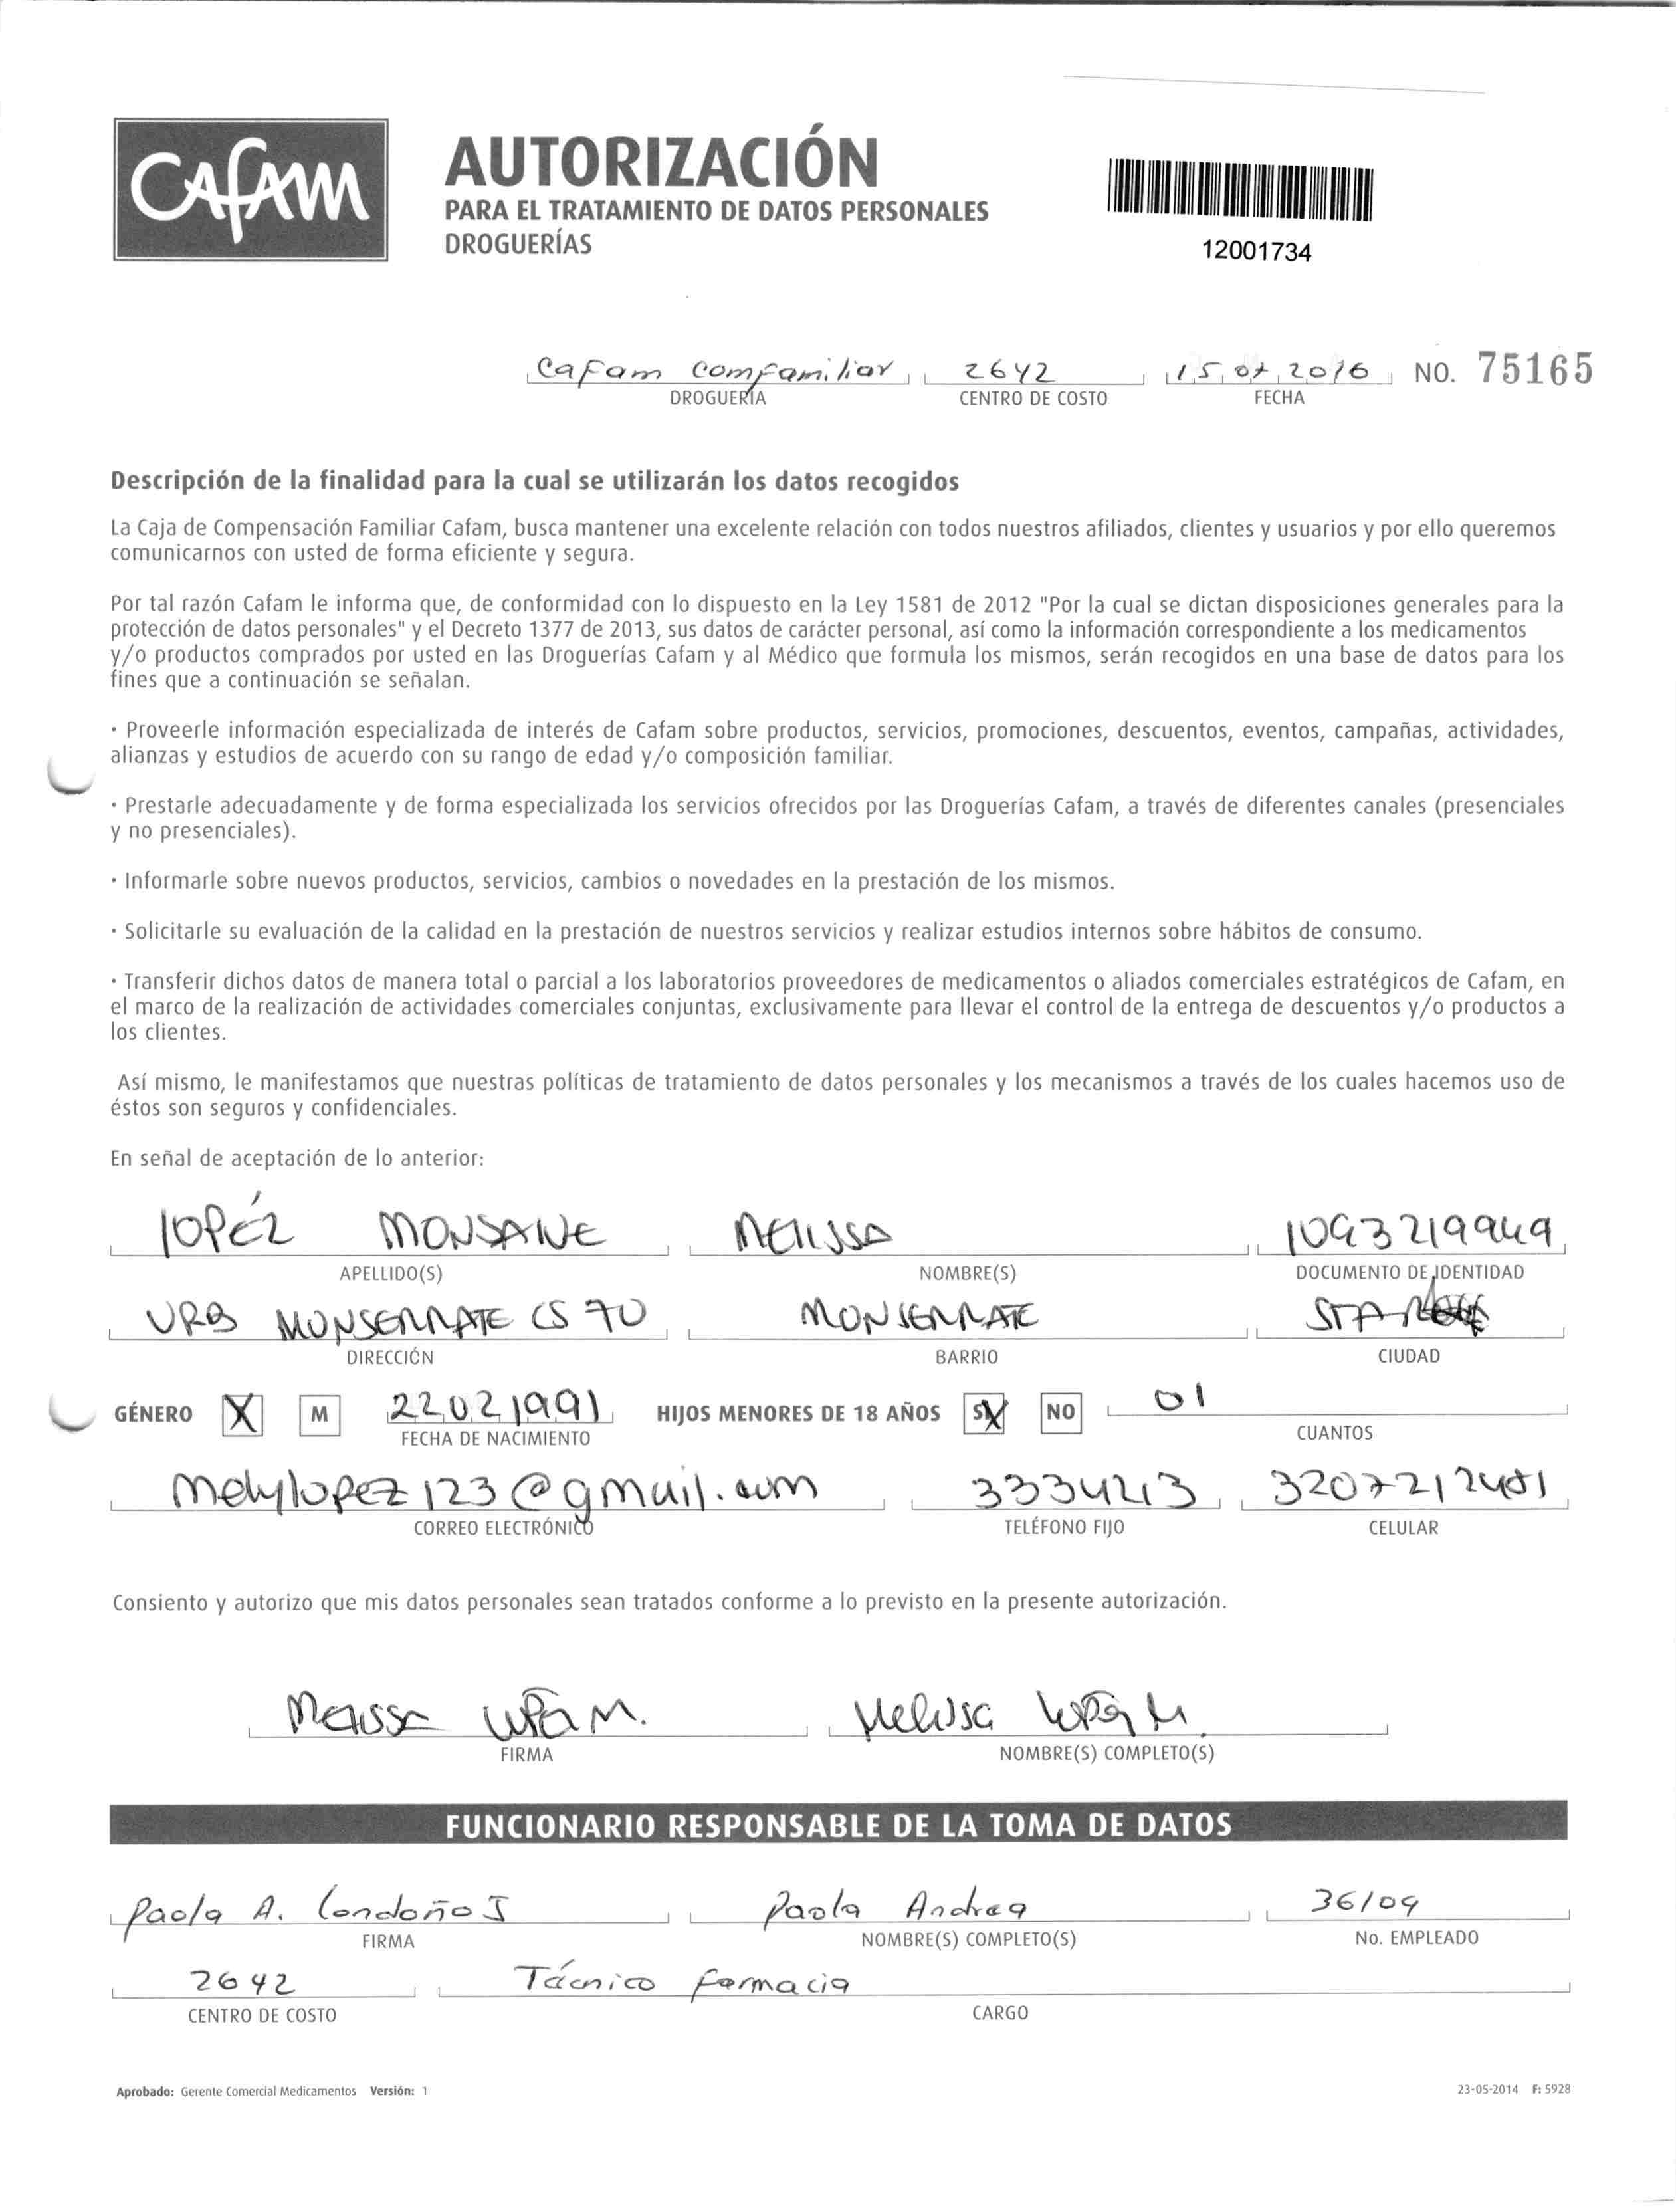 CAFAM
AUTORIZACIÓN
PARA EL TRATAMIENTO DE DATOS PERSONALES
DROGUERÍAS
12001734
Cafam Comfamiliar 2642 15 07 2016 NO. 75165
DROGUERÍA CENTRO DE COSTO FECHA
Descripción de la finalidad para la cual se utilizarán los datos recogidos
La Caja de Compensación Familiar Cafam, busca mantener una excelente relación con todos nuestros afiliados, clientes y usuarios y por ello queremos
comunicarnos con usted de forma eficiente y segura.
Por tal razón Cafam le informa que, de conformidad con lo dispuesto en la Ley 1581 de 2012 "Por la cual se dictan disposiciones generales para la
protección de datos personales" y el Decreto 1377 de 2013, sus datos de carácter personal, así como la información correspondiente a los medicamentos
y/o productos comprados por usted en las Droguerías Cafam y al Médico que formula los mismos, serán recogidos en una base de datos para los
fines que a continuación se señalan.
· Proveerle información especializada de interés de Cafam sobre productos, servicios, promociones, descuentos, eventos, campañas, actividades,
alianzas y estudios de acuerdo con su rango de edad y/o composición familiar.
· Prestarle adecuadamente y de forma especializada los servicios ofrecidos por las Droguerías Cafam, a través de diferentes canales (presenciales
y no presenciales).
· Informarle sobre nuevos productos, servicios, cambios o novedades en la prestación de los mismos.
· Solicitarle su evaluación de la calidad en la prestación de nuestros servicios y realizar estudios internos sobre hábitos de consumo.
· Transferir dichos datos de manera total o parcial a los laboratorios proveedores de medicamentos o aliados comerciales estratégicos de Cafam, en
el marco de la realización de actividades comerciales conjuntas, exclusivamente para llevar el control de la entrega de descuentos y/o productos a
los clientes.
Así mismo, le manifestamos que nuestras políticas de tratamiento de datos personales y los mecanismos a través de los cuales hacemos uso de
éstos son seguros y confidenciales.
En señal de aceptación de lo anterior:
lopéz MONSALVE MELISSA 1093219949
APELLIDO(S) NOMBRE(S) DOCUMENTO DE IDENTIDAD
URB MONSERRATE CS 70 MONSERRATE STA
DIRECCIÓN BARRIO CIUDAD
GÉNERO X M 22 02 1991 HIJOS MENORES DE 18 AÑOS SI X NO 01
FECHA DE NACIMIENTO CUANTOS
melylopez123@gmail.com 3334213
CORREO ELECTRÓNICO TELÉFONO FIJO CELULAR
Consiento y autorizo que mis datos personales sean tratados conforme a lo previsto en la presente autorización.
Melissa lopez M. Melissa lopez M
FIRMA NOMBRE(S) COMPLETO(S)
FUNCIONARIO RESPONSABLE DE LA TOMA DE DATOS
Paola A. Londoño J Paola Andrea 36109
FIRMA NOMBRE(S) COMPLETO(S) No. EMPLEADO
2642 Técnico farmacia
CENTRO DE COSTO CARGO
Aprobado: Gerente Comercial Medicamentos Versión: 1 23-05-2014 F: 5928